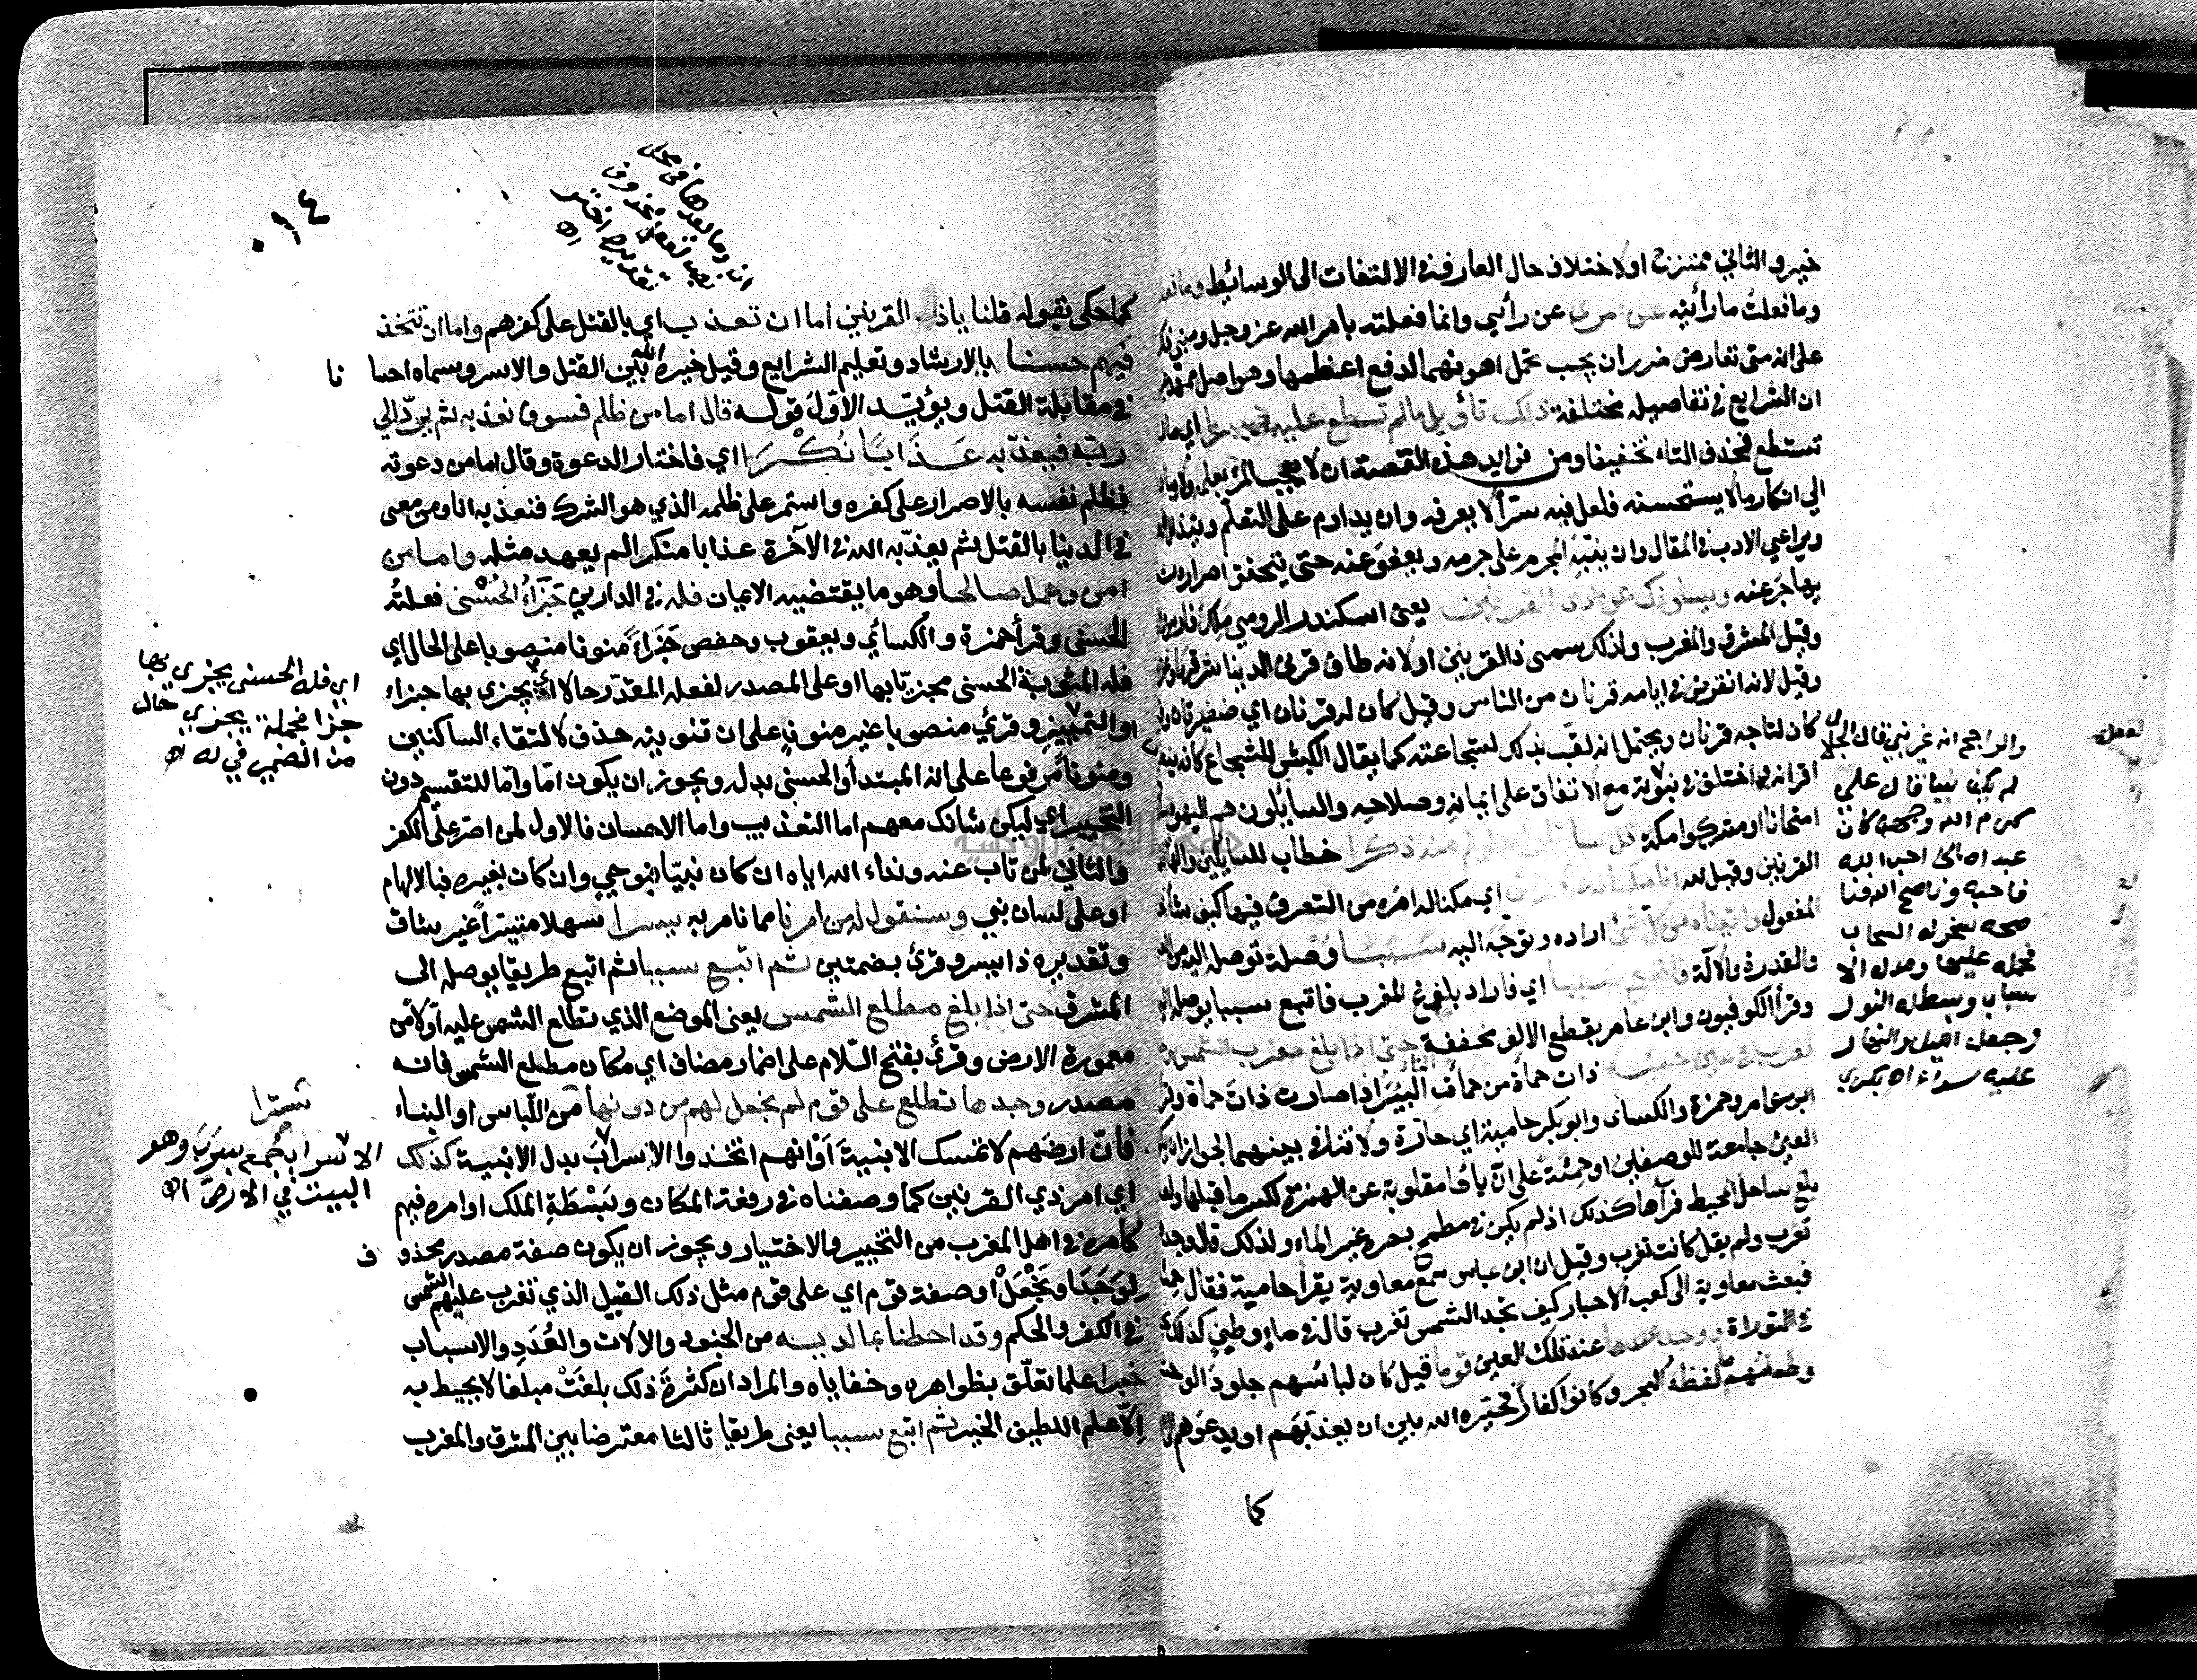 خير والثاني ممتزج او لاختلاف حال العارف في الالتفات الى الوسائط وما فعلـ
وما فعلتُ ما رأيته عن امري عن رأيي وانما فعلته بامر الله عز وجل ومبنى ذلك
على انه متى تعارض ضرران يجب تحمل اهونهما لدفع اعظمهما وهو اصل ممهد غير
ان الشرايع في تفاصيله مختلفة ذلك تأويل ما لم تسطع عليه صبرا اي ما لم
تستطع فحذف التاء تخفيفا ومن فوايد هذه القصة ان لا يعجب المرء بعلمه ولا يبادر
الى انكار ما لا يستحسنه فلعل فيه سرّا لا يعرفه وان يداوم على التعلّم ويتذلل
ويراعي الادب في المقال وان ينبّه المجرم على جرمه ويعفو عنه حتى يتحقق اصراره ثم
يهاجر عنه ويسئلونك عن ذي القرنين يعنى اسكندر الرومي ملك فارس
وقيل المشرق والمغرب ولذلك سمى ذا القرنين او لانه طاف قرنى الدنيا شرقها وغربها
وقيل لانه انقرض في ايامه قرنان من الناس وقيل كان له قرنان اي ضفيرتان وقيل
كان لتاجه قرنان ويحتمل انه لقّب بذلك لشجاعته كما يقال الكبش للشجاع كانه ينطح
اقرانه واختلف في نبوّته مع الاتفاق على ايمانه وصلاحه والسايلون هم اليهود سألوه
امتحانا او مشركوا مكة قل سأتلوا عليكم منه ذكرا خطاب للسايلين والهاء
القرنين وقيل لله انا مكنا له في الارض اي مكنا له امره من التصرف فيها كيف شاء
المفعول واتيناه من كل شئ اراده وتوجّه اليه سببا وُصلة توصله اليه من العلم
والقدرة والآلة فاتبع سببا اي فاراد بلوغ المغرب فاتبع سببا يوصله اليه
وقرأ الكوفيون وابن عامر بقطع الالف مخففة التاء حتى اذا بلغ مغرب الشمس وجدها
تغرب في عين حمئة ذات حمأة من حمأت البئر اذا صارت ذات حمأة وقرأ
ابن عامر وحمزة والكسائى وابو بكر حامية اي حارّة ولا تنافي بينهما لجواز ان يكون
العين جامعة للوصفين او حمئة على انّ ياءها مقلوبة عن الهمزة لكسر ما قبلها ولعله
بلغ ساحل المحيط فرآها كذلك اذ لم يكن في مطمح بصره غير الماء ولذلك قال وجدها
تغرب ولم يقل كانت تغرب وقيل ان ابن عباس سمع معاوية يقرأ حامية فقال حمئة
فبعث معاوية الى كعب الاحبار كيف تجد الشمس تغرب قال في ماء وطين كذلك نجده
في التوراة ووجد عندها عند تلك العين قوما قيل كان لباسهم جلود الوحش
وطعامهم ما لفظه البحر وكانوا كفارا فخيّره الله بين ان يعذبهم او يدعوهم الى
كما
والراجح انه غير نبي قال الجلال
لم يكن نبيا قال علي
كرم الله وجهه كان
عبدا صالحا احب الله
فاحبه وناصح الله فنا
صحه سخر له السحاب
فحمله عليها ومد له الا
سباب وبسط له النور
وجعل الليل والنهار
عليه سواء اه بكري
٠١٤
كما حكى بقوله قلنا يا ذا القرنين اما ان تعذب اي بالقتل على كفرهم واما ان تتخذ
فيهم حسنا بالارشاد وتعليم الشرايع وقيل خيره الله بين القتل والاسر وسماه احسا نا
في مقابلة القتل ويؤيّد الاوّل قوله قال اما من ظلم فسوف نعذبه ثم يردّ الى
ربّه فيعذّبه عَذَابًا نُكْرًا اي فاختار الدعوة وقال اما من دعوته
فظلم نفسه بالاصرار على كفره واستمر على ظلمه الذي هو الشرك فنعذبه انا ومن معى
في الدنيا بالقتل ثم يعذّبه الله في الآخرة عذابا منكرا لم يعهد مثله واما من
امن وعمل صالحا وهو ما يقتضيه الايمان فله في الدارين جَزَاءُ الحُسْنى فعلته
الحسنى وقرأ حمزة والكسائي ويعقوب وحفص جَزَاءً منونا منصوبا على الحال اي
فله المثوبة الحسنى مجزيّا بها او على المصدر لفعله المقدّر حالا اي يجزي بها جزاء
او التمييز وقرئ منصوبا غير منون على ان تنوينه حذف لالتقاء الساكنين
ومنونا مرفوعا على انه المبتدأ والحسنى بدله ويجوز ان يكون امّا وامّا للتقسيم دون
التخيير اي ليكن شانك معهم اما التعذيب واما الاحسان فالاول لمن اصرّ على الكفر
والثاني لمن تاب عنه ونداء الله اياه ان كان نبيّا فبوحي وان كان غيره فبالالهام
او على لسان نبي وسنقول له من امرنا مما نامر به يسرا سهلا متيسرا غير شاق
وتقديره ذا يسر وقرئ بضمتين ثم اتبع سببا ثم اتبع طريقا يوصله الى
المشرق حتى اذا بلغ مطلع الشمس يعنى الموضع الذي تطلع الشمس عليه اوّلا من
معمورة الارض وقرئ بفتح اللام على اضمار مضاف اي مكان مطلع الشمس فانه
مصدر وجدها تطلع على قوم لم نجعل لهم من دونها سترا من اللباس او البناء
فانّ ارضهم لا تمسك الابنيةَ اَوْ انهم اتخذوا الاسرابَ بدل الابنية كذلك
اي امر ذي القرنين كما وصفناه في رفعة المكان وبَسْطَةِ الملك او امره فيهم
كامره في اهل المغرب من التخيير والاختيار ويجوز ان يكون صفة مصدر محذو ف
لِوَجَدَ او نَجْعَلْ او صفة قوم اي على قوم مثل ذلك القبيل الذي تغرب عليهم الشمس
في الكفر والحكم وقد احطنا بما لديه من الجنود والالات والعُدَدِ والاسباب
خبرا علما تعلّق بظواهره وخفاياه والمراد ان كثرةَ ذلك بلغَتْ مبلغا لا يحيط به
اِلّا علم اللطيف الخبير ثم اتبع سببا يعنى طريقا ثالثا معترضا بين المشرق والمغرب
اي فله الحسنى يجزي بها
جزا فجملة يجزي حال
من الضمير في له اه
الاسراب جمع سَرَبَ وهو
البيت في الارض اه